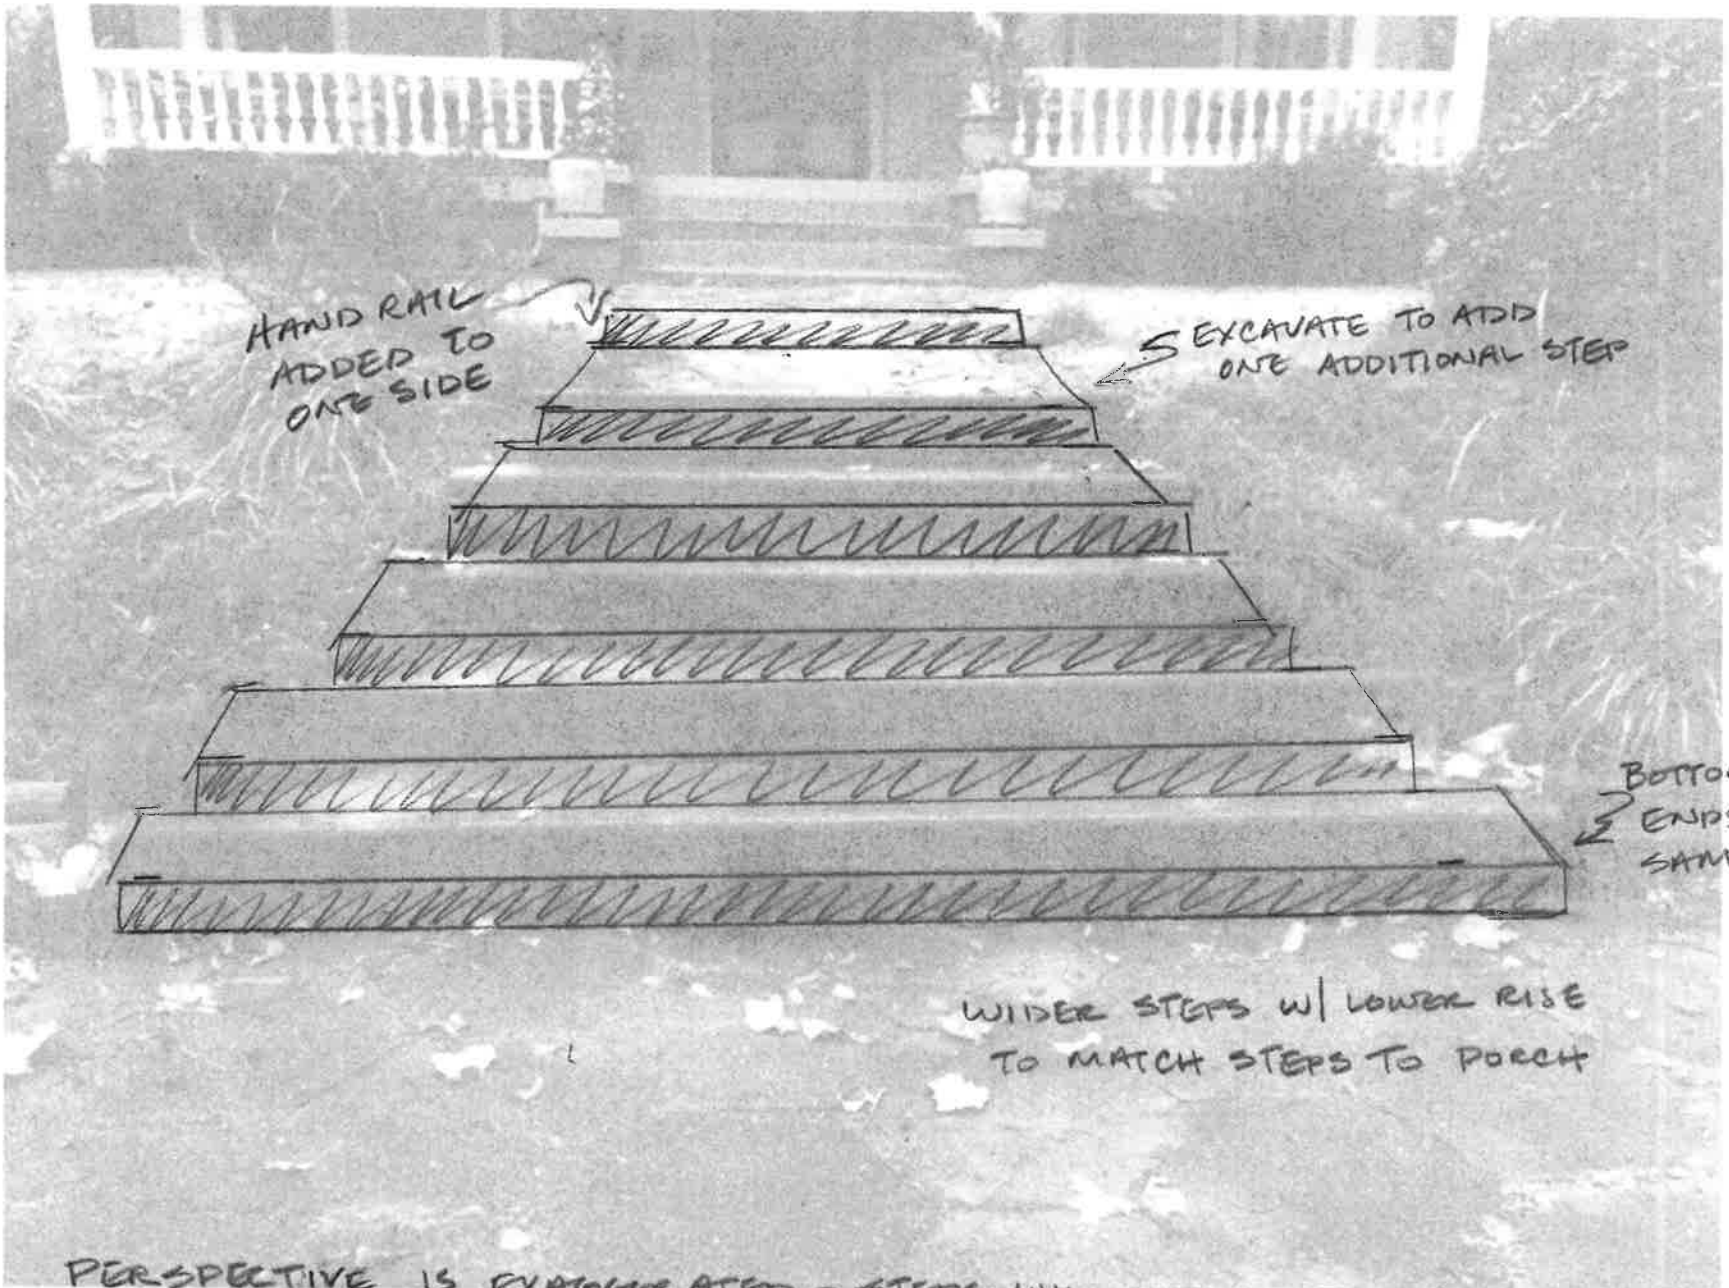 HAND RAIL
ADDED TO
ONE SIDE
EXCAVATE TO ADD
ONE ADDITIONAL STEP
ENDS
WIDER STEPS W/ LOWER RISE
TO MATCH STEPS TO PORCH
PERSPECTIVE IS EXAGGERATED - STEPS